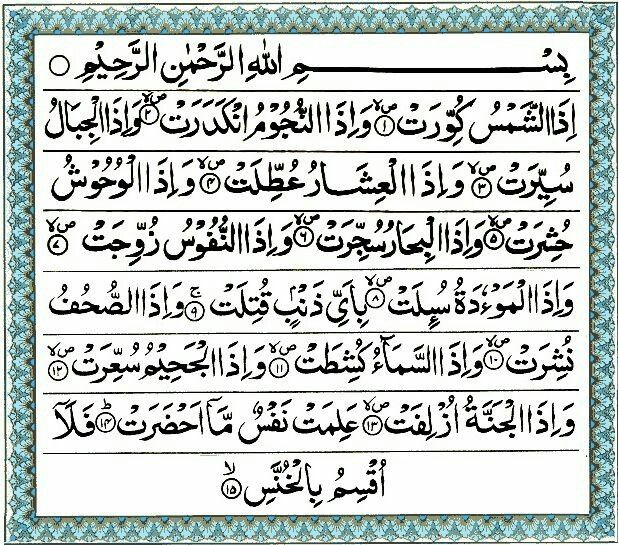 بِسْــــــــــــمِ اللهِ الرَّحْمٰنِ الرَّحِيْمِ ○
اِذَا الشَّمْسُ كُوِّرَتْ ۪ۙ﴿۱﴾ وَاِذَا النُّجُوْمُ انْكَدَرَتْ ۪ۙ﴿۲﴾ وَاِذَا الْجِبَالُ
سُيِّرَتْ ۪ۙ﴿۳﴾ وَاِذَا الْعِشَارُ عُطِّلَتْ ۪ۙ﴿۴﴾ وَاِذَا الْوُحُوْشُ
حُشِرَتْ ۪ۙ﴿۵﴾ وَاِذَا الْبِحَارُ سُجِّرَتْ ۪ۙ﴿۶﴾ وَاِذَا النُّفُوْسُ زُوِّجَتْ ۪ۙ﴿۷﴾
وَاِذَا الْمَوْءٗدَةُ سُىِٕلَتْ ۪ۙ﴿۸﴾ بِاَىِّ ذَنْۢبٍ قُتِلَتْ ۚ﴿۹﴾ وَاِذَا الصُّحُفُ
نُشِرَتْ ۪ۙ﴿۱۰﴾ وَاِذَا السَّمَآءُ كُشِطَتْ ۪ۙ﴿۱۱﴾ وَاِذَا الْجَحِيْمُ سُعِّرَتْ ۪ۙ﴿۱۲﴾
وَاِذَا الْجَنَّةُ اُزْلِفَتْ ۪ۙ﴿۱۳﴾ عَلِمَتْ نَفْسٌ مَّاۤ اَحْضَرَتْ ؕ﴿۱۴﴾ فَلَاۤ
اُقْسِمُ بِالْخُنَّسِ ۙ﴿۱۵﴾